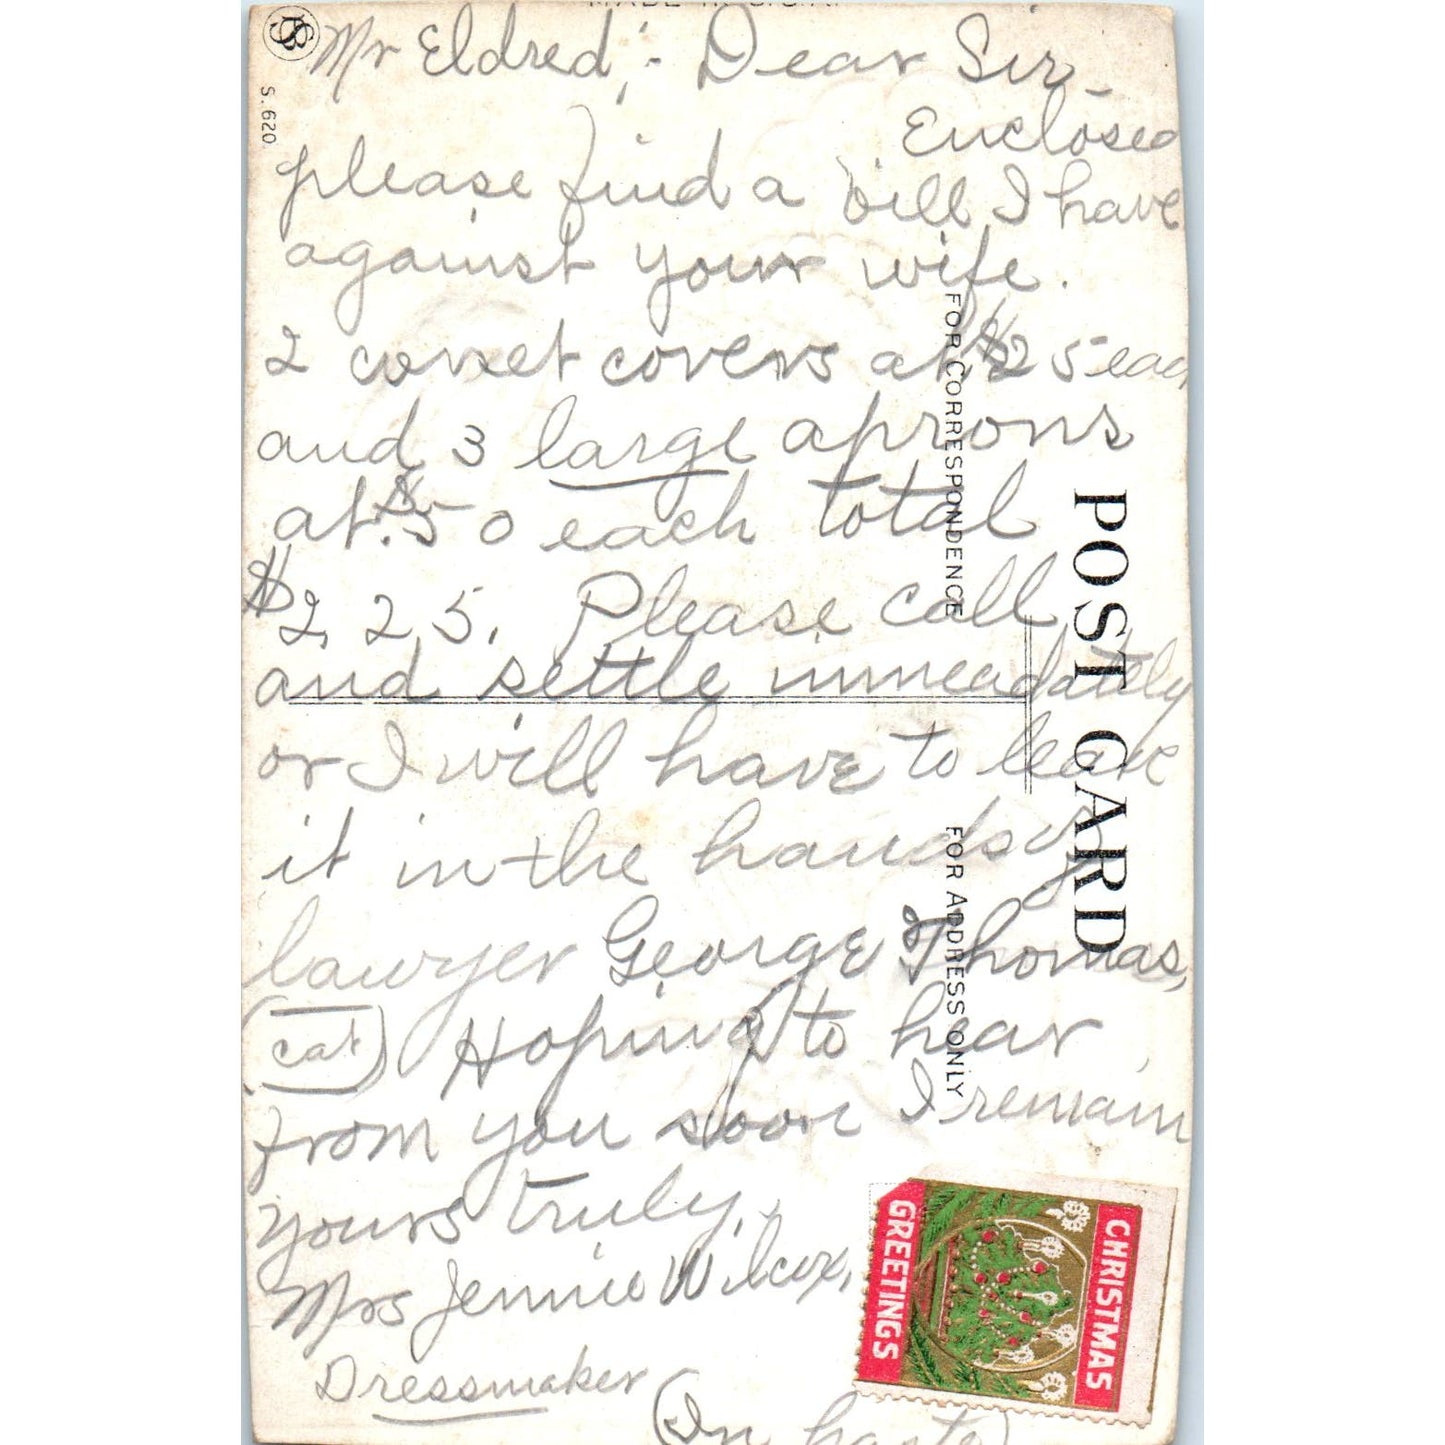 MADE IN U.S.A.
S. 620.
Mr Eldred,:- Dear Sir,
Enclosed
please find a bill I have
against your wife.
2 corset covers at $ 25 each
and 3 large aprons
at $ .50 each total
$2,25. Please call
and settle immeadately
or I will have to leave
it in the hands of
lawyer George Thomas,
(cat) Hoping to hear
from you soon I remain
yours truly,
Mrs Jennie Wilcox,
Dressmaker
(In haste)
POST CARD
FOR CORRESPONDENCE
FOR ADDRESS ONLY
CHRISTMAS
GREETINGS